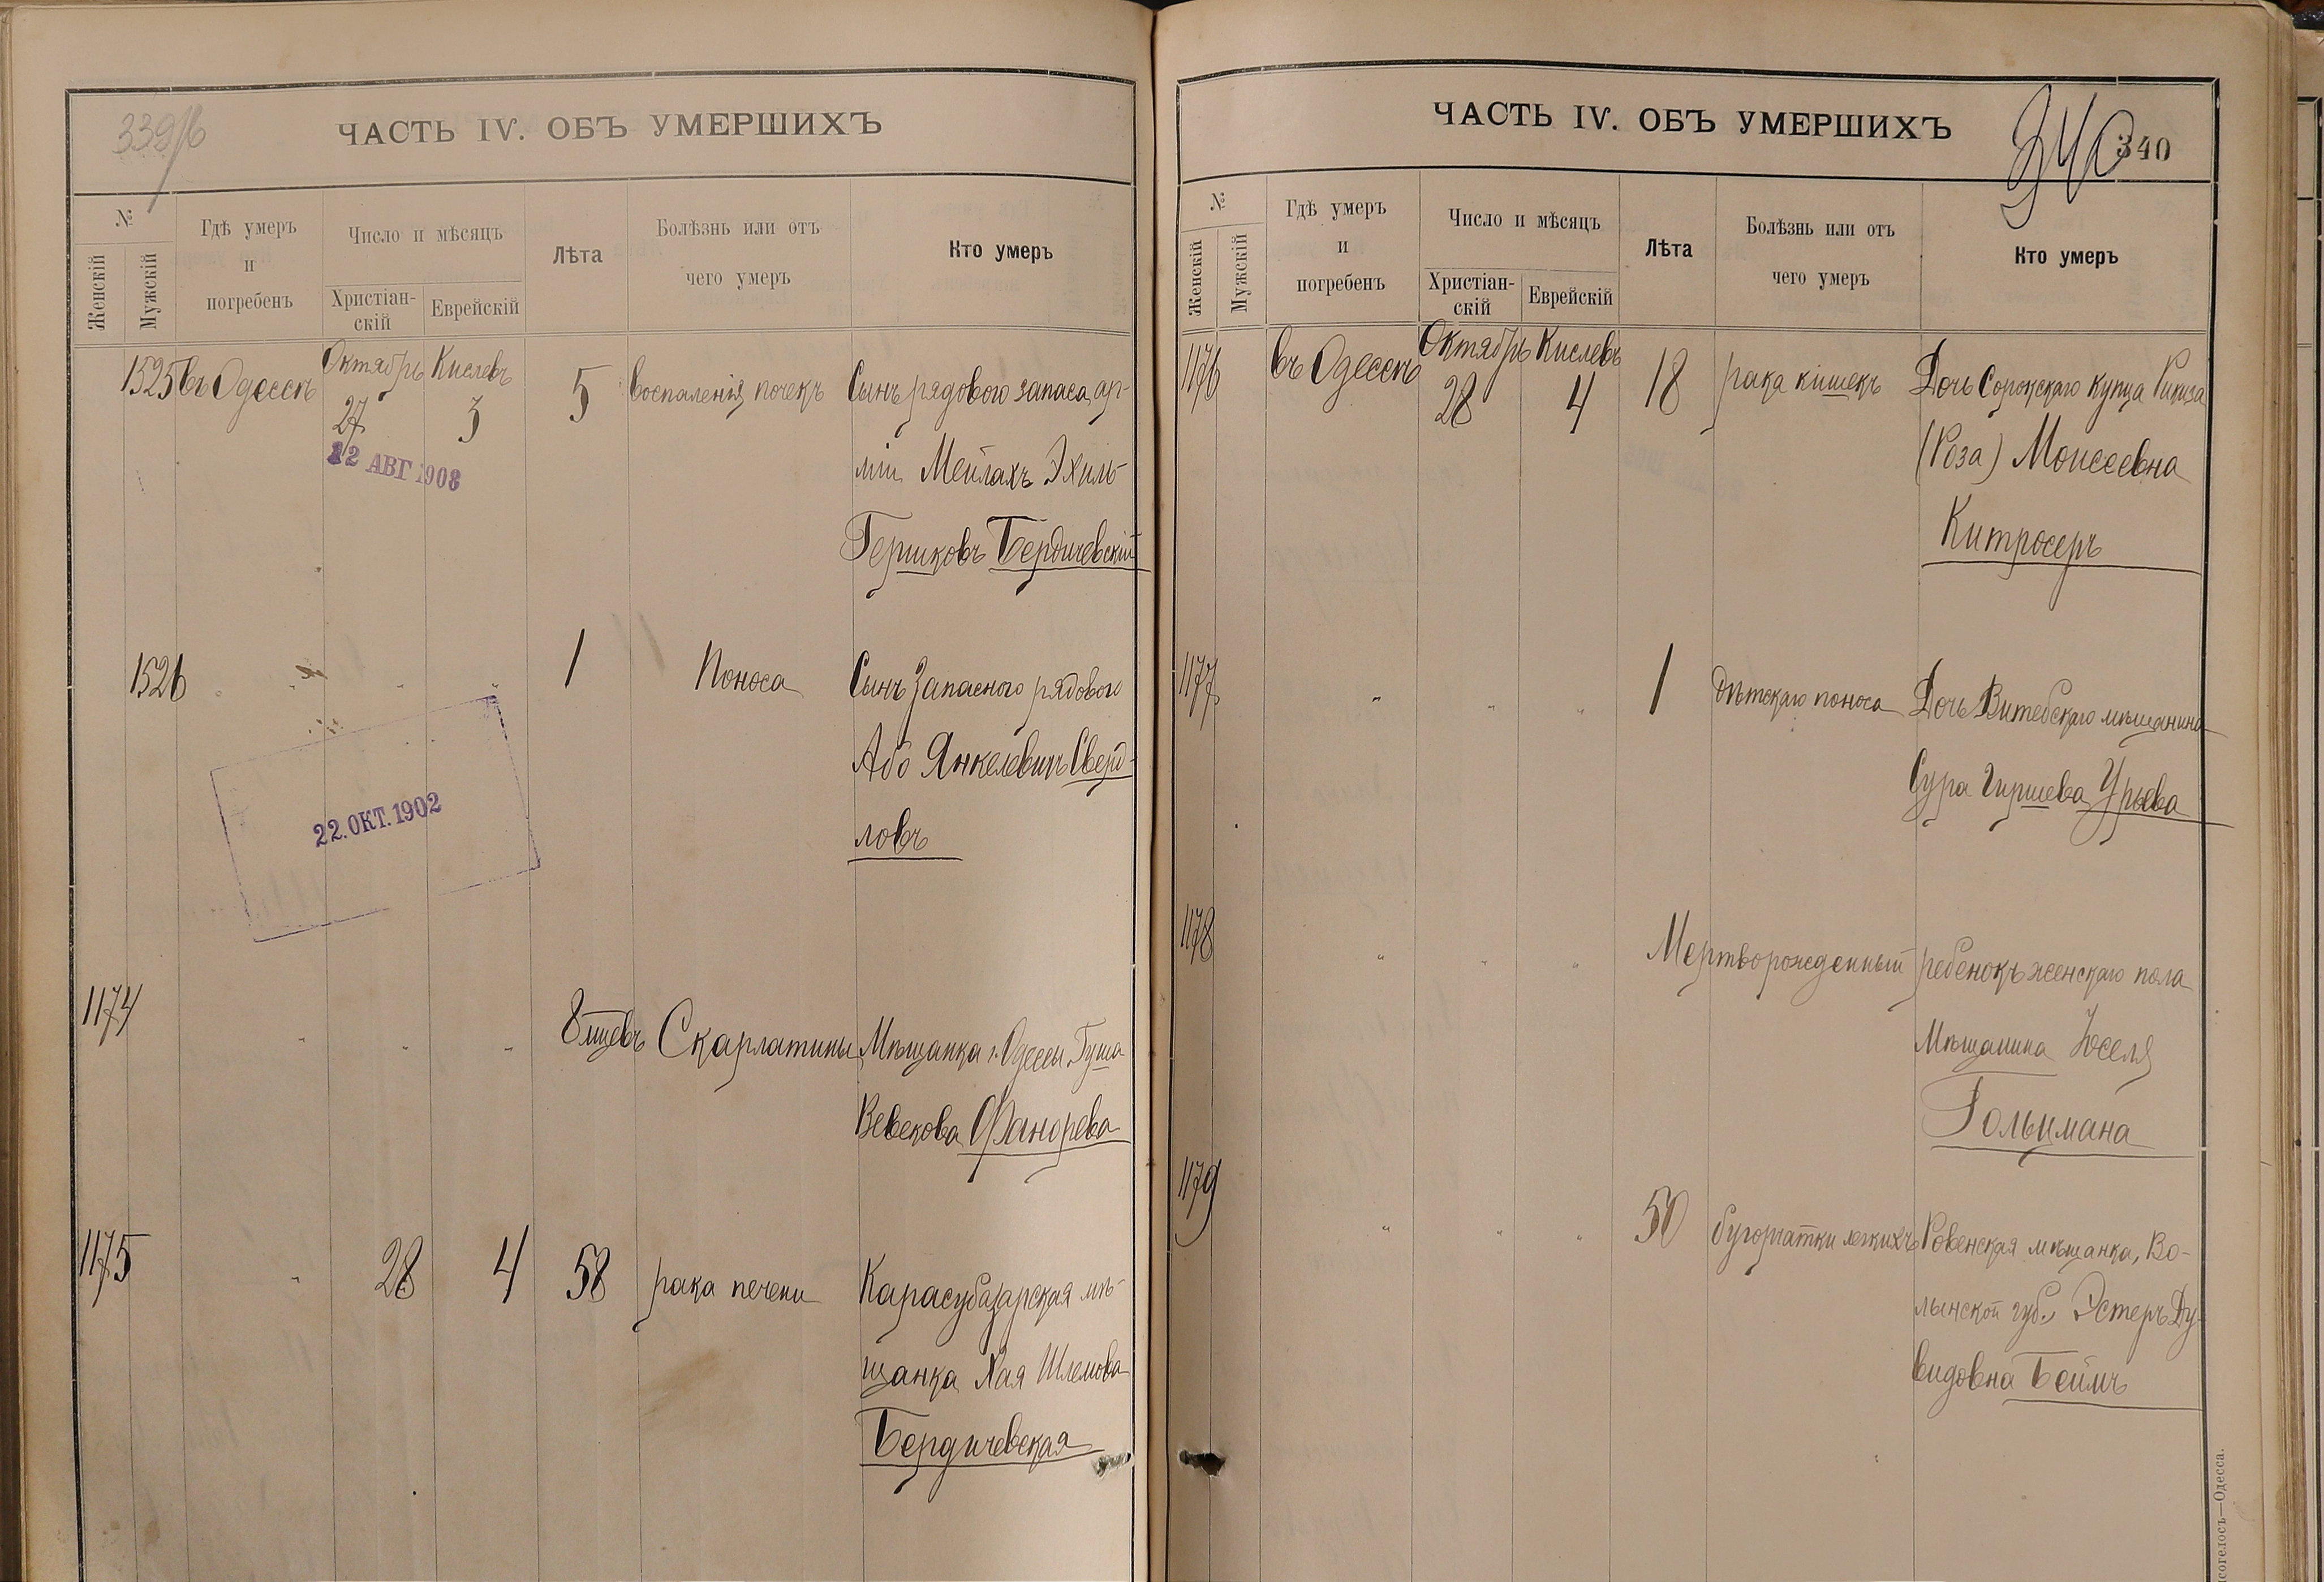 339/б
ЧАСТЬ IV. ОБЪ УМЕРШИХЪ
№
Женскій
Мужскій
Гдѣ умеръ
и
погребенъ
Число и мѣсяцъ
Христіан-
скій
Еврейскій
Лѣта
Болѣзнь или отъ
чего умеръ
Кто умеръ
1525 въ Одессѣ Октябрь Кислевъ 5 воспаленія почекъ Сынъ рядового запаса ар-
27 3
12 АВГ 1908
міи Мейлахъ Эхиль-
Гершковъ Бердичевскій
1526 " " " 1 Поноса Сынъ запасного рядового
Або Янкелевичъ Сверд-
ловъ
22.ОКТ.1902
1174 " " " 8 мцевъ Скарлатины Мѣщанка г. Одессы
Фанорева
1175 " 28 4 58 рака печени Карасубазарская мѣ-
щанка Хая Шлемова
Бердичевская
ЧАСТЬ IV. ОБЪ УМЕРШИХЪ
340
340
№
Женскій
Мужскій
Гдѣ умеръ
и
погребенъ
Число и мѣсяцъ
Христіан-
скій
Еврейскій
Лѣта
Болѣзнь или отъ
чего умеръ
Кто умеръ
1176 въ Одессѣ Октябрь Кислевъ 18 рака кишекъ Дочь Сорокскаго купца
28 4
(Роза) Моисеевна
Китросеръ
1177 " " " 1 дѣтскаго поноса Дочь Витебскаго мѣщанина
Сура Гиршева Урьева
1178 " " " Мертворожденный ребенокъ женскаго пола
Мѣщанина Іоселя
Гольцмана
1179 " " " 50 бугорчатки легкихъ Ровенская мѣщанка, Во-
лынской губ. Эстеръ Ду-
видовна Беймъ
—Одесса.